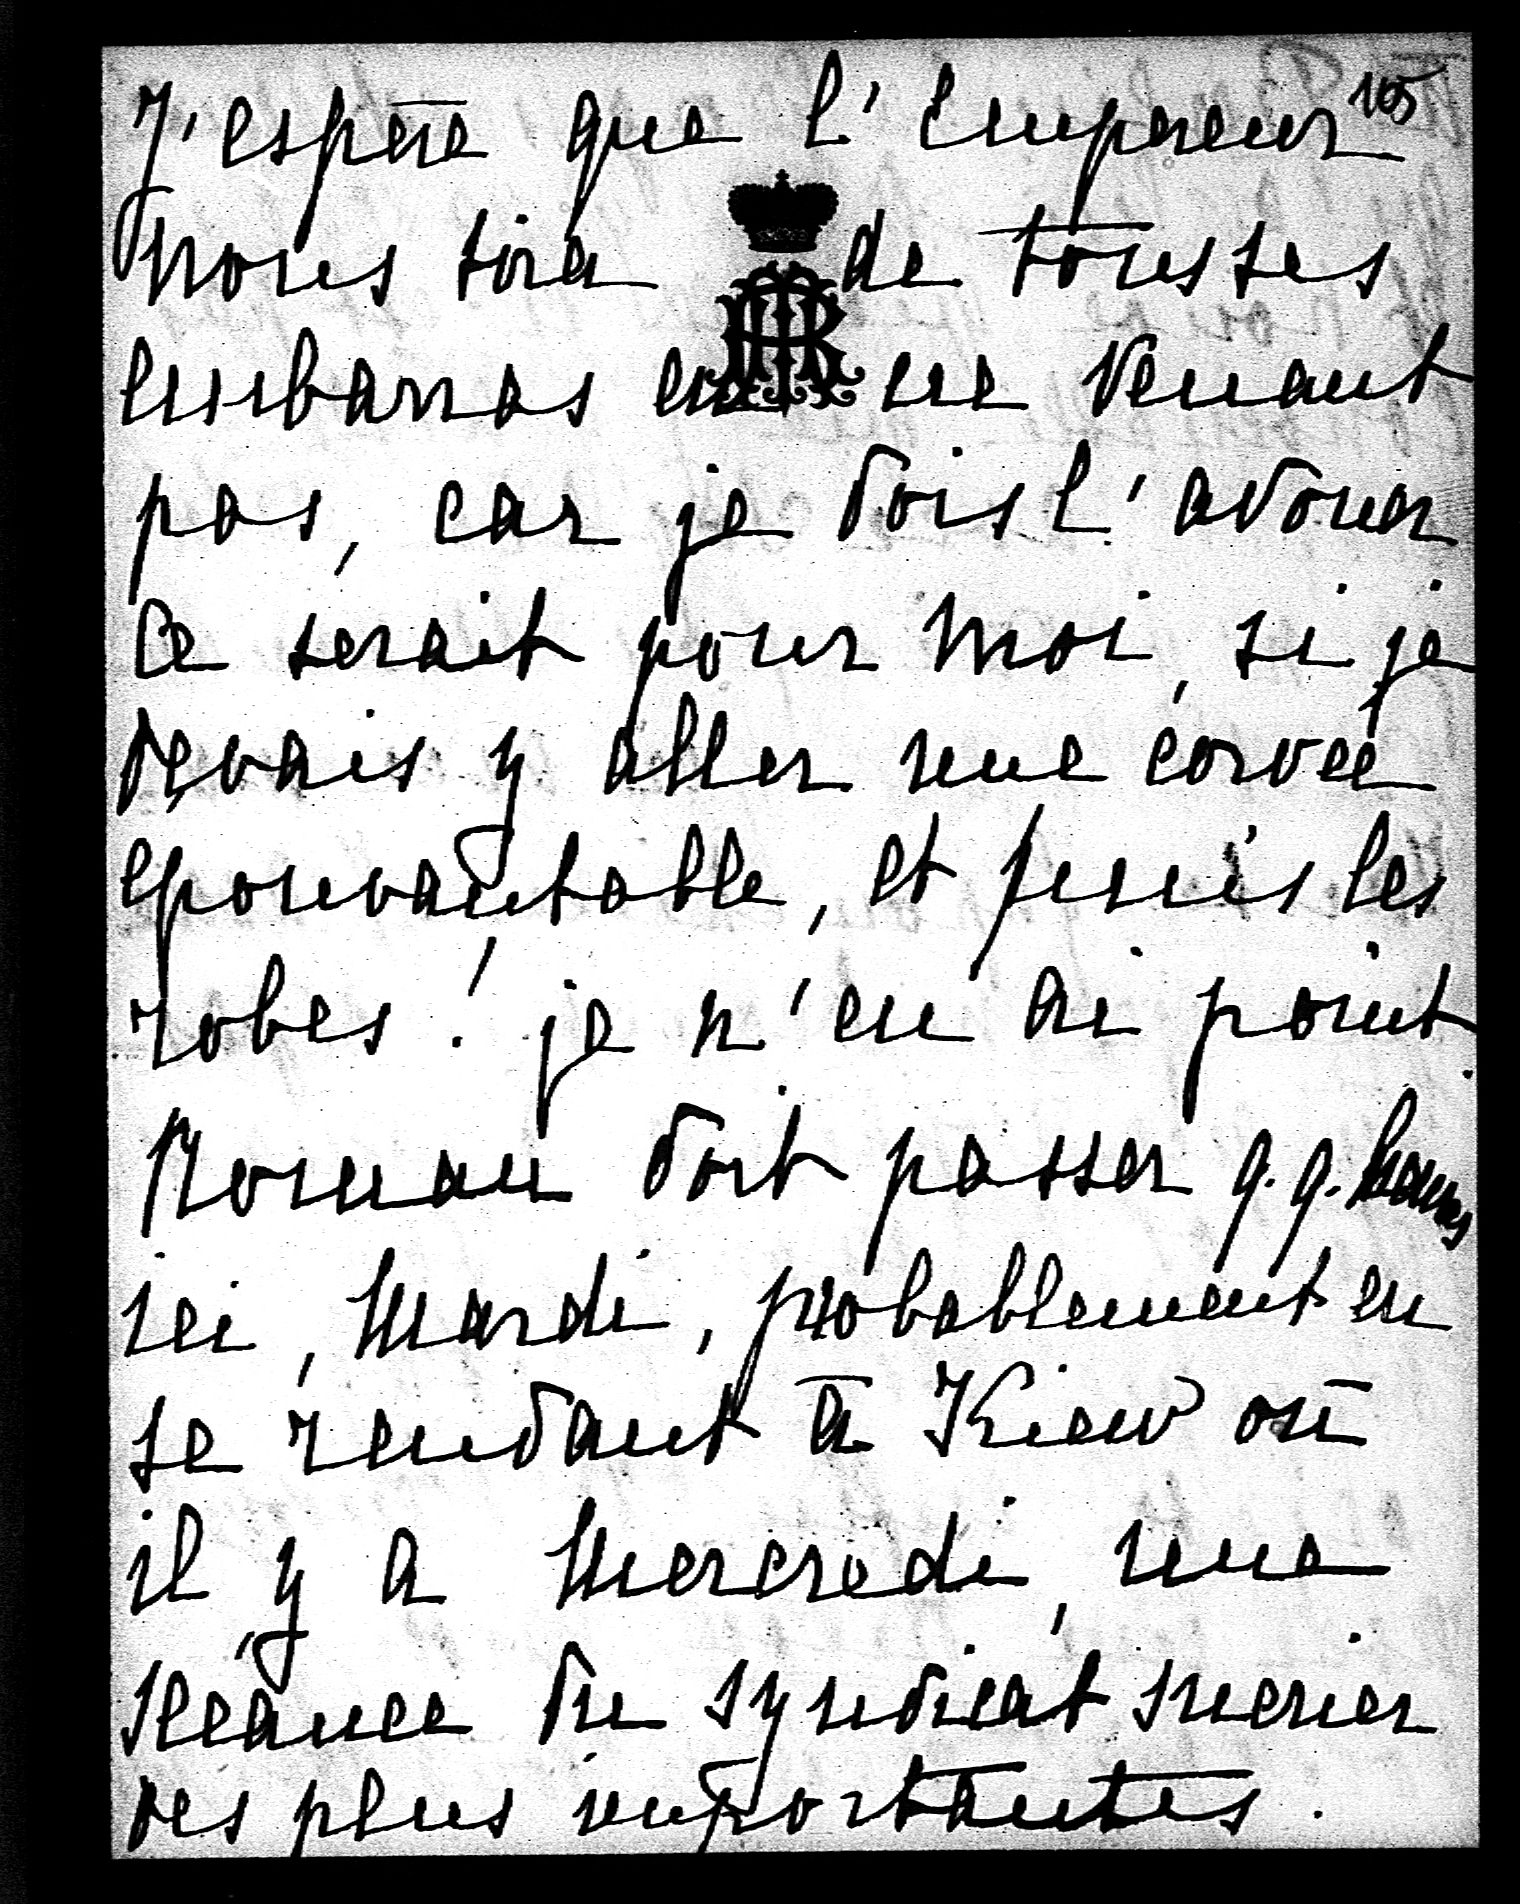 105
J'espère que l'Empereur
nous tira de tous ses
embarras en ne venant
pas, car je dois l'avouer
ce serait pour moi, si je
devais y aller une corvée
epouvantable, et puis les
robes! je n'en ai point
Roman doit passer q.q. heures
ici, Mardi, probablement en
se rendant à Kiew où
il y a Mercredi, une
séance du syndicat sucrier
des plus importantes.